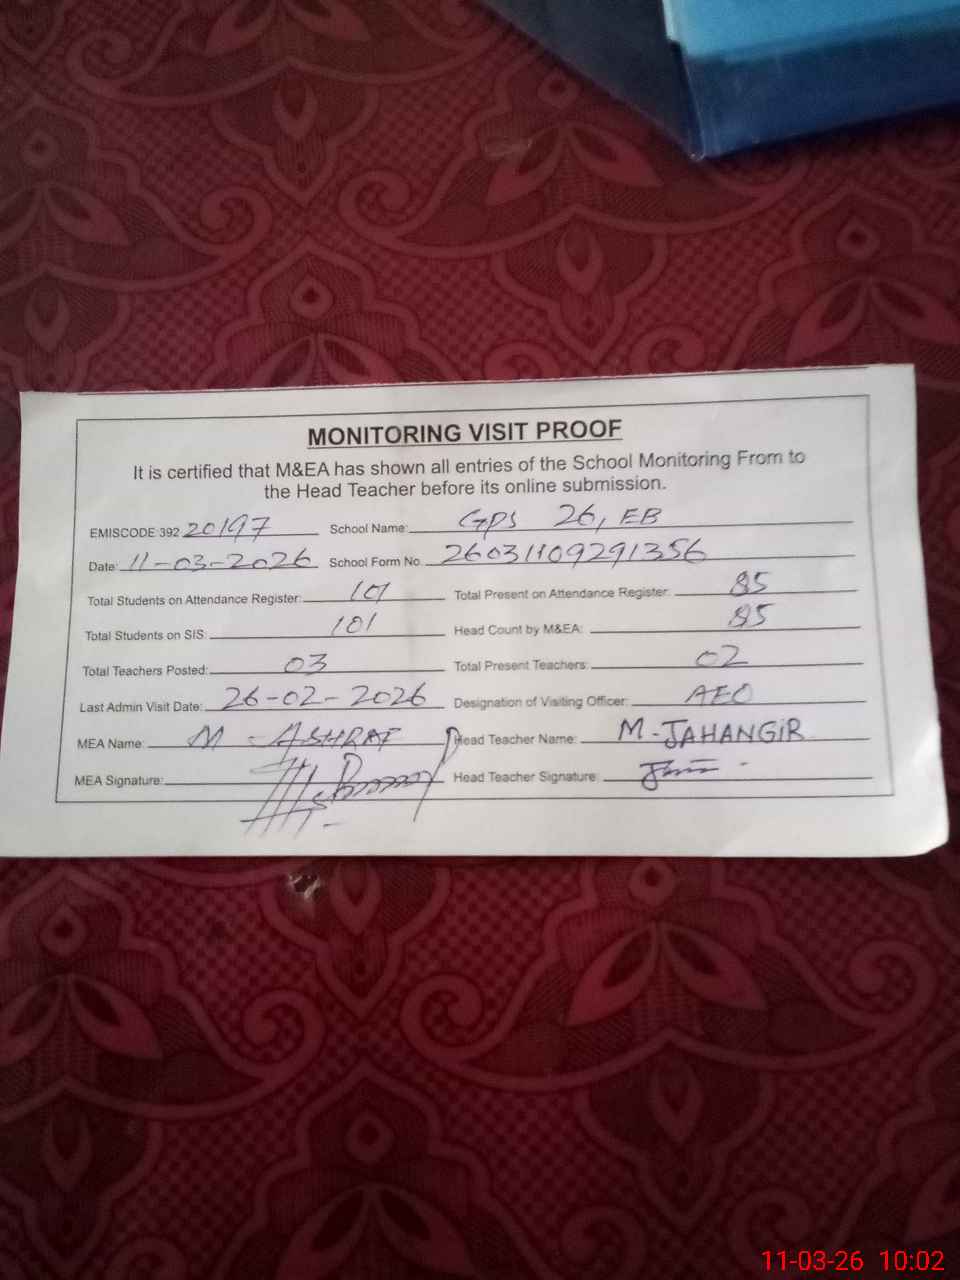 MONITORING VISIT PROOF
It is certified that M&EA has shown all entries of the School Monitoring From to
the Head Teacher before its online submission.
EMISCODE 392 20197 School Name: GPS 26, EB
Date: 11-03-2026 School Form No. 26031109291356
Total Students on Attendance Register: 101 Total Present on Attendance Register: 85
Total Students on SIS: 101 Head Count by M&EA: 85
Total Teachers Posted: 03 Total Present Teachers: 02
Last Admin Visit Date: 26-02-2026 Designation of Visiting Officer: AEO
MEA Name: M - ASHRAF Head Teacher Name: M-JAHANGIR
MEA Signature: Head Teacher Signature:
11-03-26 10:02